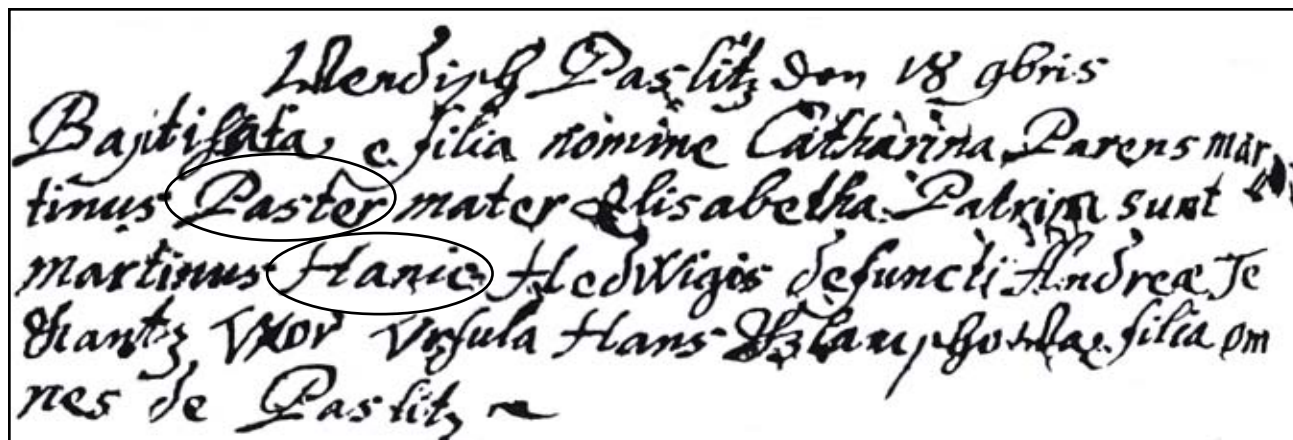 Wendisch Paslitz den 18 9bris
Baptisata e filia nomine Catharina Parens mar
tinus Paster mater Elisabetha Patrini sunt
martinus Hanic Hedwigis defuncti Andreæ Te
chantz Vxor Vrsula Hans filia om
nes de Paslitz